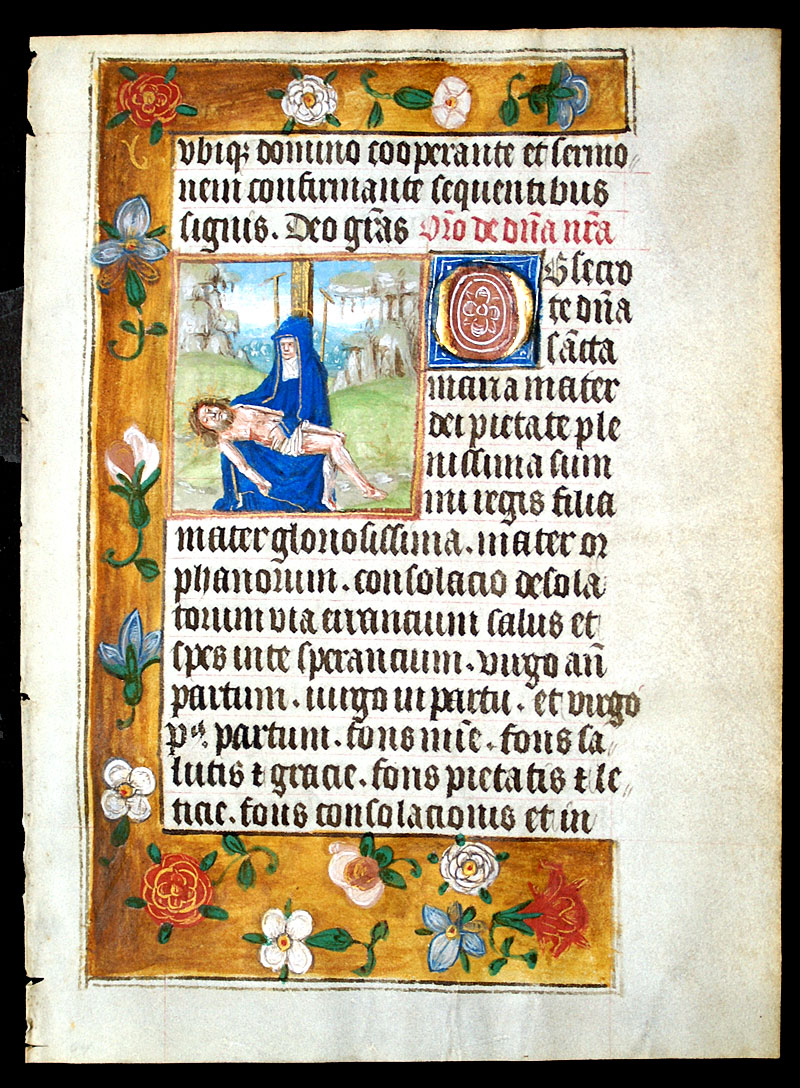 vbiqꝫ domino cooperante et sermo
nem confirmante sequentibus
signis. Deo grãs Orõ de dña nr̃a
OBsecro
te dña
sãcta
maria mater
dei pietate ple
nissima sum
mi regis filia
mater gloriosissima. mater or
phanorum. consolacio desola
torum via errancium salus et
spes in te sperancium. virgo añ
partum. uirgo in partu. et virgo
pꝰ partum. fons mĩe. fons sa
lutis ⁊ gracie. fons pietatis ⁊ le
ticie. fons consolacionis et in